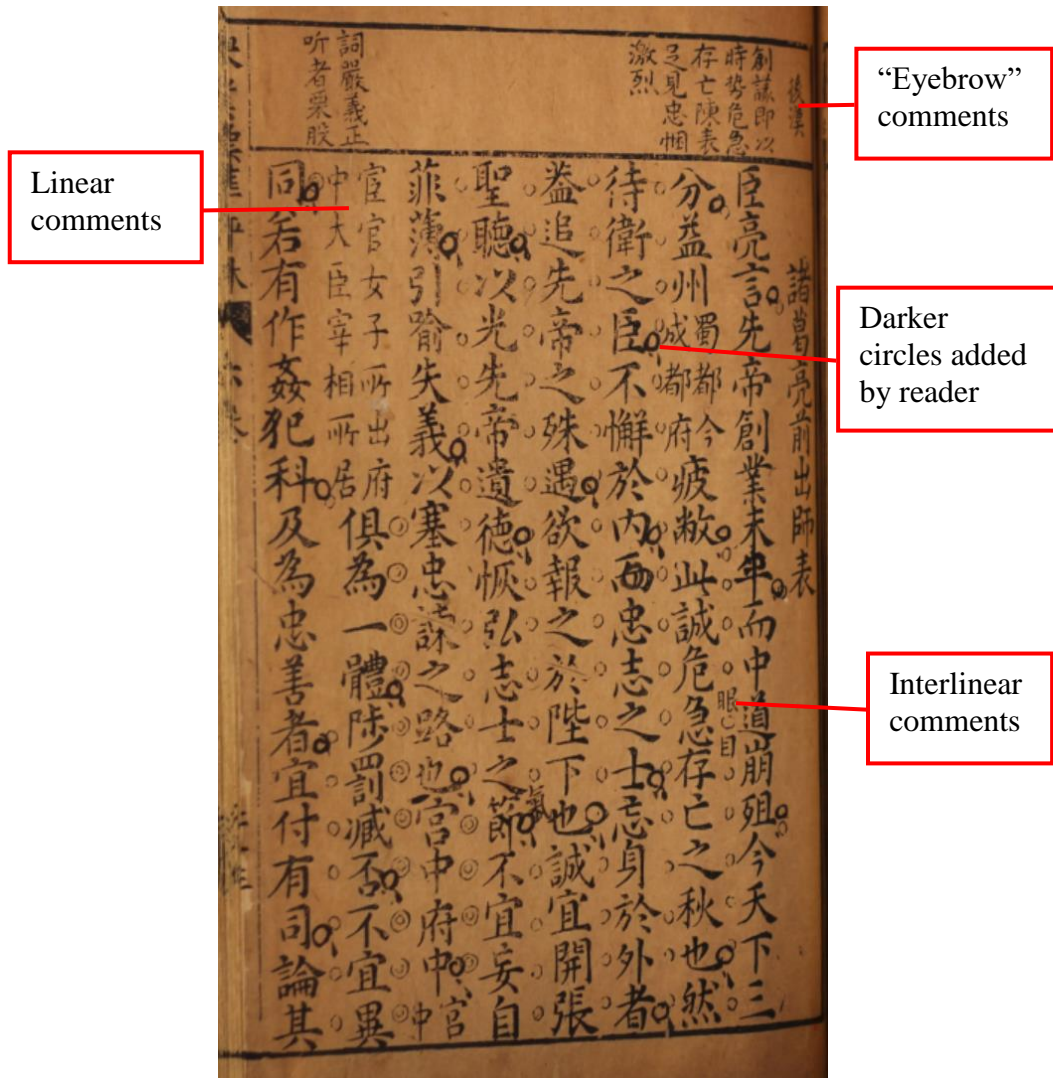 “Eyebrow” comments
Linear comments
Darker circles added by reader
Interlinear comments
後漢
創議即以
時势危急
存亡陳表
足見忠悃
激烈
詞嚴義正
听者栗股
諸葛亮前出師表
臣亮言先帝創業未半而中道崩殂今天下三
眼目
分益州蜀都今成都府疲敝此誠危急存亡之秋也然
待衛之臣不懈於內而忠志之士忘身於外者
葢追先帝之殊遇欲報之於陛下也誠宜開張
氣
聖聽以光先帝遺德恢弘志士之節不宜妄自
菲薄引喻失義以塞忠諫之路也宮中府中宮中
宦官女子所出府中大臣宰相所居俱為一體陟罰臧否不宜異
同若有作姦犯科及為忠善者宜付有司論其